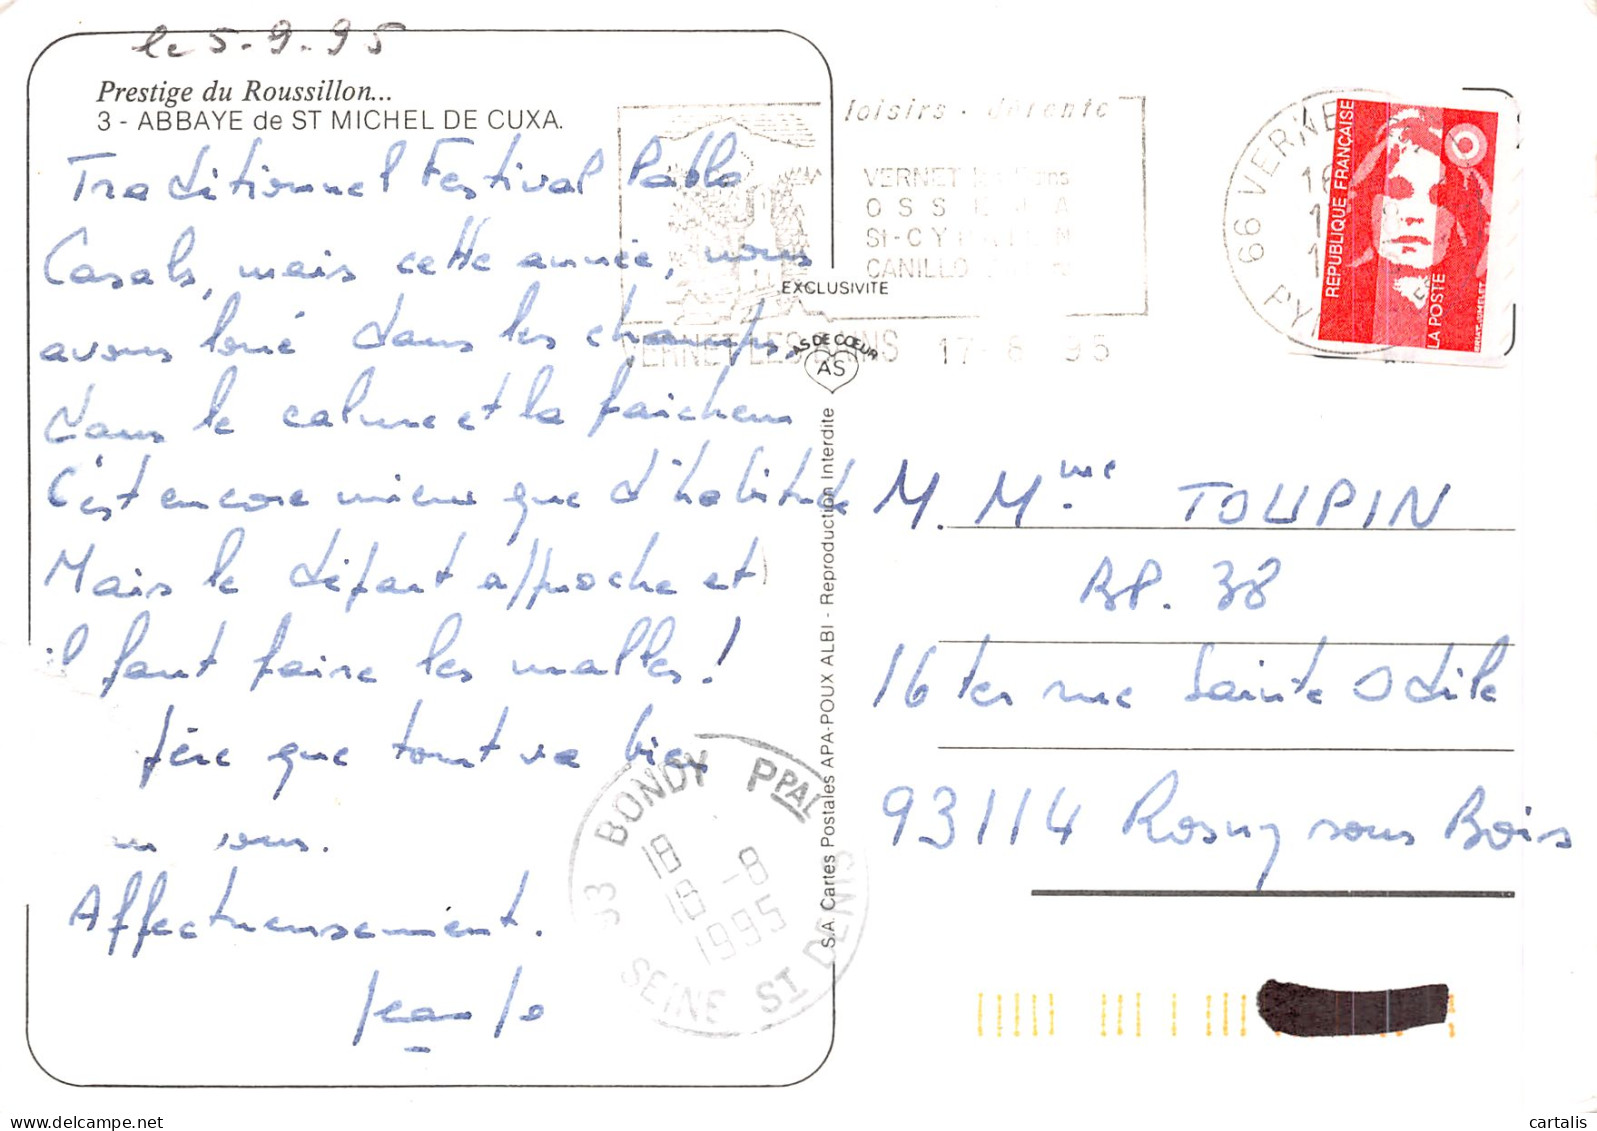 le 5-9-95
Prestige du Roussillon...
3 - ABBAYE de ST MICHEL DE CUXA.
Traditionnel Festival Pablo
Casals, mais cette année, nous
avons loué dans les champs,
dans le calme et la faicheur
C'est encore mieux que d'habitude
Mais le départ approche et
il faut faire les malles !
père que tout va bien
vous.
Affectueusement.
Jean Jo
loisirs - détente
VERNET les Bains
OSSEJA
St-CYPRIEN
CANILLO
VERNET LES BAINS 17 8 95
66 VERNE
PY
EXCLUSIVITE
AS DE CŒUR
AS
S.A. Cartes Postales APA-POUX ALBI - Reproduction Interdite
REPUBLIQUE FRANÇAISE
LA POSTE
M. Mme TOUPIN
BP. 38
16 ter rue Sainte Odile
93114 Rosny sous Bois
93 BONDY PPAL
18
18 -8
1995
SEINE ST DENIS
cartalis